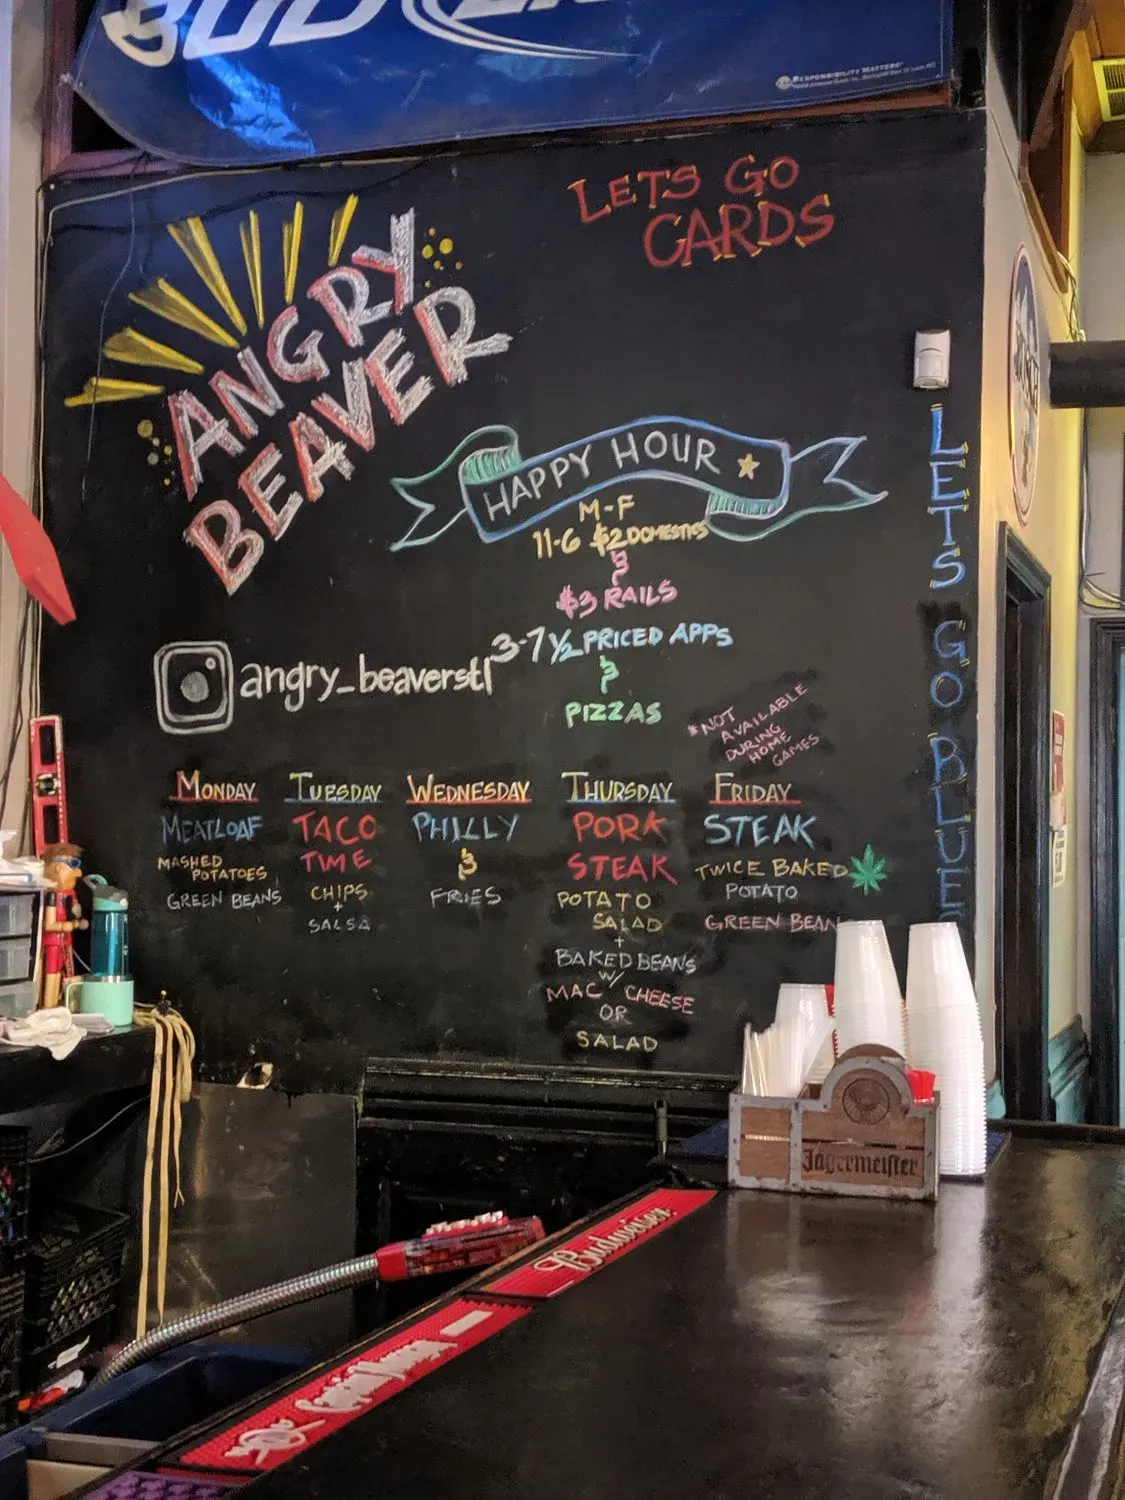 BUD LIGHT
RESPONSIBILITY MATTERS
LETS GO
CARDS
ANGRY
BEAVER
HAPPY HOUR
M-F
11-6 $2 DOMESTICS
&
$3 RAILS
3-7 ½ PRICED APPS
&
PIZZAS
*NOT
AVAILABLE
DURING
HOME
GAMES
angry_beaverstl
LETS GO BLUES
MONDAY
MEATLOAF
MASHED
POTATOES
GREEN BEANS
TUESDAY
TACO
TIME
CHIPS
+
SALSA
WEDNESDAY
PHILLY
&
FRIES
THURSDAY
PORK
STEAK
POTATO
SALAD
+
BAKED BEANS
W/
MAC CHEESE
OR
SALAD
FRIDAY
STEAK
TWICE BAKED
POTATO
GREEN BEAN
Jägermeister
Budweiser
Captain Morgan